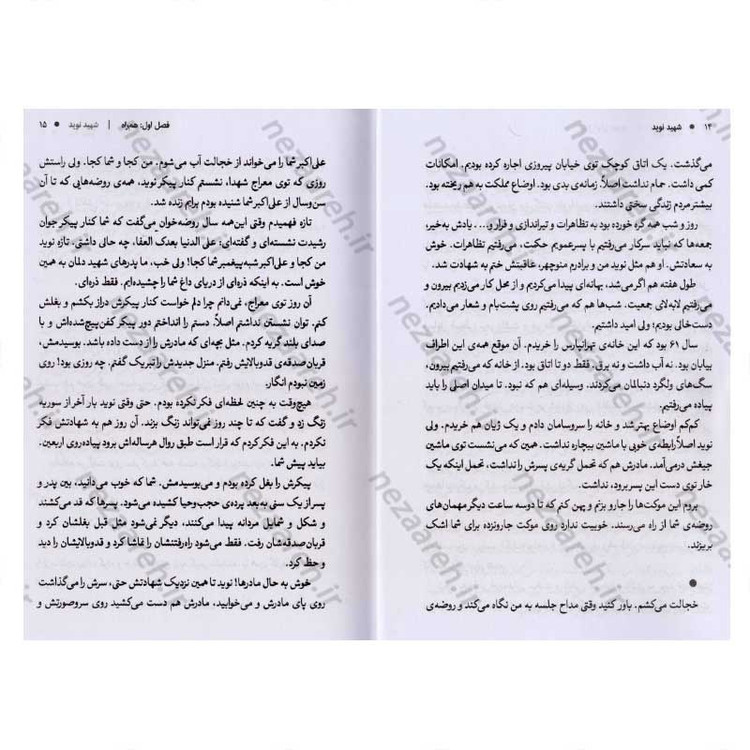 ۱۴ ● شهید نوید
می‌گذشت. یک اتاق کوچک توی خیابان پیروزی اجاره کرده بودم. امکانات
کمی داشت. حمام نداشت اصلاً. زمانه‌ی بدی بود. اوضاع مملکت به هم ریخته بود.
بیشتر مردم زندگی سختی داشتند.
روز و شب همه گره خورده بود به تظاهرات و تیراندازی و فرار و... یادش به‌خیر،
جمعه‌ها که نباید سرکار می‌رفتیم با پسرعمویم حکمت، می‌رفتیم تظاهرات. خوش
به سعادتش. او هم مثل نوید من و برادرم منوچهر، عاقبتش ختم به شهادت شد.
طول هفته هم اگر می‌شد، بهانه‌ای پیدا می‌کردیم و از محل کار می‌زدیم بیرون و
می‌رفتیم لابه‌لای جمعیت. شب‌ها هم که می‌رفتیم روی پشت‌بام و شعار می‌دادیم.
دست خالی بودیم؛ ولی امید داشتیم.
سال ۶۱ بود که این خانه‌ی تهرانپارس را خریدم. آن موقع همه‌ی این اطراف
بیابان بود. نه آب داشت و نه برق. فقط دو تا اتاق بود. از خانه که می‌رفتیم بیرون،
سگ‌های ولگرد دنبالمان می‌کردند. وسیله‌ای هم که نبود. تا میدان اصلی را باید
پیاده می‌رفتیم.
کم‌کم اوضاع بهتر شد و خانه را سروسامان دادم و یک ژیان هم خریدم. ولی
نوید اصلاً رابطه‌ی خوبی با ماشین بیچاره نداشت. همین که می‌نشست توی ماشین
جیغش درمی‌آمد. مادرش هم که تحمل گریه‌ی پسرش را نداشت، تحمل اینکه یک
خار توی دست این پسر برود، نداشت.
بروم این موکت‌ها را جارو بزنم و پهن کنم که تا دوسه ساعت دیگر مهمان‌های
روضه‌ی شما از راه می‌رسند. خوبیت ندارد روی موکت جارونزده برای شما اشک
بریزند.
●
خجالت می‌کشم. باور کنید وقتی مداح جلسه به من نگاه می‌کند و روضه‌ی
فصل اول: همراه | شهید نوید ● ۱۵
علی‌اکبر شما را می‌خواند از خجالت آب می‌شوم. من کجا و شما کجا. ولی راستش
روزی که توی معراج شهدا، نشستم کنار پیکر نوید، همه‌ی روضه‌هایی که تا آن
سن‌وسال از علی‌اکبر شما شنیده بودم برام زنده شد.
تازه فهمیدم وقتی این‌همه سال روضه‌خوان می‌گفت که شما کنار پیکر جوان
رشیدت نشسته‌ای و گفته‌ای: علی الدنیا بعدک العفا، چه حالی داشتی. تازه نوید
من کجا و علی‌اکبر شبه پیغمبر شما کجا! ولی خب، ما پدرهای شهید دلمان به همین
خوش است. به اینکه ذره‌ای از دریای داغ شما را چشیده‌ایم. فقط ذره‌ای.
آن روز توی معراج، نمی‌دانم چرا دلم خواست کنار پیکرش دراز بکشم و بغلش
کنم. توان نشستن نداشتم اصلاً. دستم را انداختم دور پیکر کفن‌پیچ‌شده‌اش و با
صدای بلند گریه کردم. مثل بچه‌ای که مادرش را از دست داده باشد. بوسیدمش،
قربان‌صدقه‌ی قدوبالایش رفتم. منزل جدیدش را تبریک گفتم. چه روزی بود! روی
زمین نبودم انگار.
هیچ‌وقت به چنین لحظه‌ای فکر نکرده بودم. حتی وقتی نوید بار آخر از سوریه
زنگ زد و گفت که تا چند روز نمی‌تواند زنگ بزند. آن روز هم به شهادتش فکر
نکردم. به این فکر کردم که قرار است طبق روال هرساله‌اش برود پیاده‌روی اربعین.
بیاید پیش شما.
پیکرش را بغل کرده بودم و می‌بوسیدمش. شما که خوب می‌دانید، بین پدر و
پسر از یک سنی به بعد پرده‌ی حجب‌وحیا کشیده می‌شود. پسرها که قد می‌کشند
و شکل و شمایل مردانه پیدا می‌کنند، دیگر نمی‌شود مثل قبل بغلشان کرد و
قربان‌صدقه‌شان رفت. فقط می‌شود راه‌رفتنشان را تماشا کرد و قدوبالایشان را دید
و حظ کرد.
خوش به حال مادرها! نوید تا همین نزدیک شهادتش حتی، سرش را می‌گذاشت
روی پای مادرش و می‌خوابید، مادرش هم دست می‌کشید روی سروصورتش و
nezaareh.ir